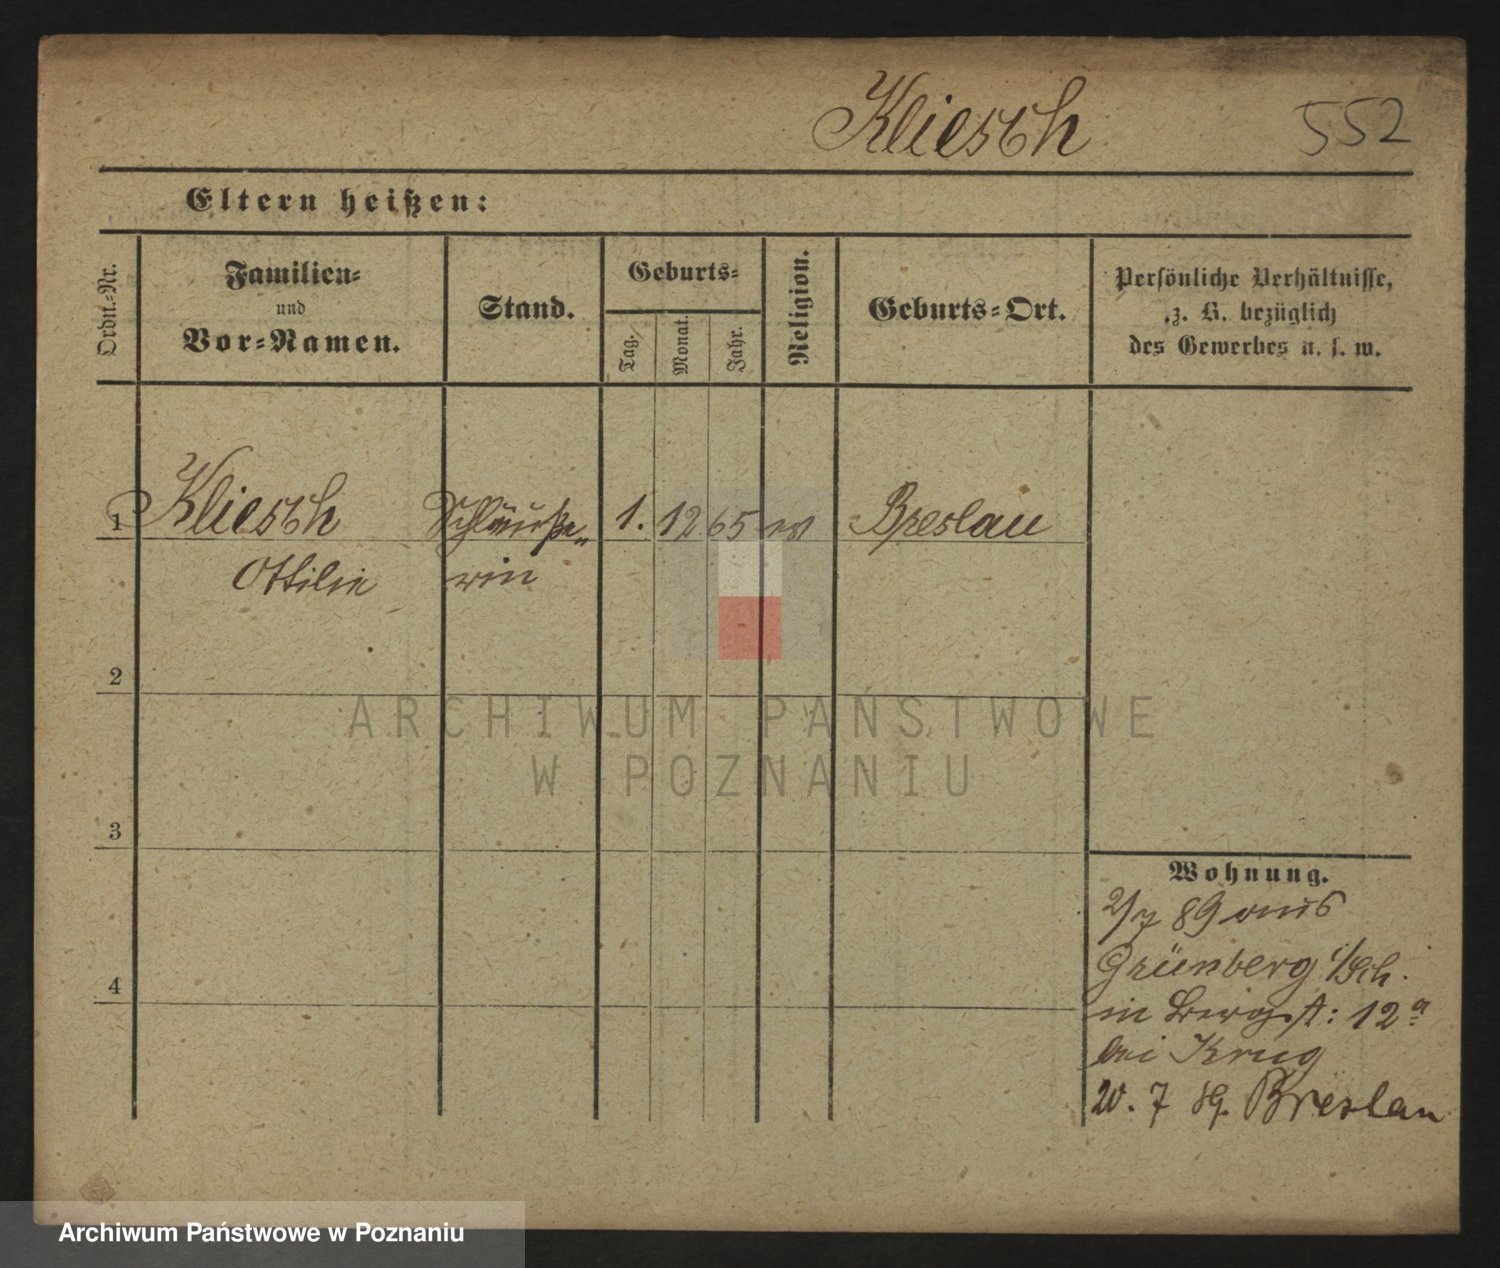 Kliesch 552
Eltern heißen:
Ordn.-Nr.
Familien-
und
Vor-Namen.
Stand.
Geburts-
Tag.
Monat.
Jahr.
Religion.
Geburts-Ort.
Persönliche Verhältnisse,
z. B. bezüglich
des Gewerbes u. s. w.
1 Kliesch Schläuße- 1. 12 65 ev Breslau
Ottilie rin
2
3
4
Wohnung.
2/7 89 aus
Grünberg i/Sch.
in Bergst: 12a
bei Krug
20. 7 89. Breslau
ARCHIWUM PAŃSTWOWE
W POZNANIU
Archiwum Państwowe w Poznaniu